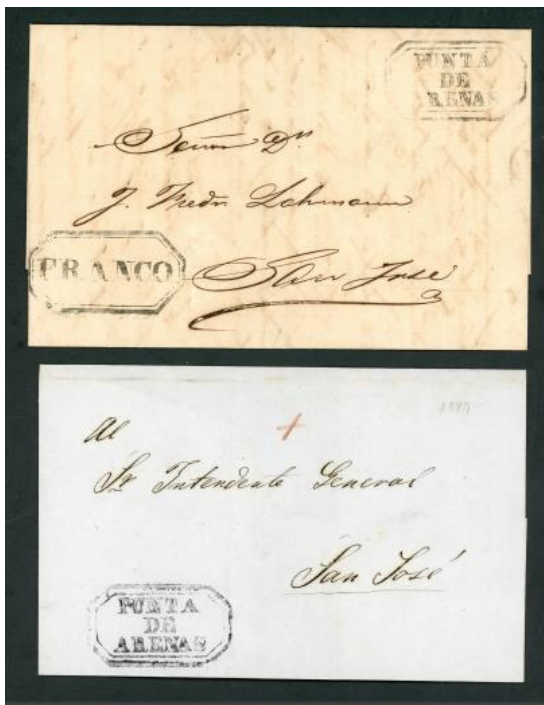 PUNTA
DE
ARENAS
Señor Dn
J. Fredr Lahmann
FRANCO
San Jose
Al
+
Sr Intendente General
San José
PUNTA
DE
ARENAS